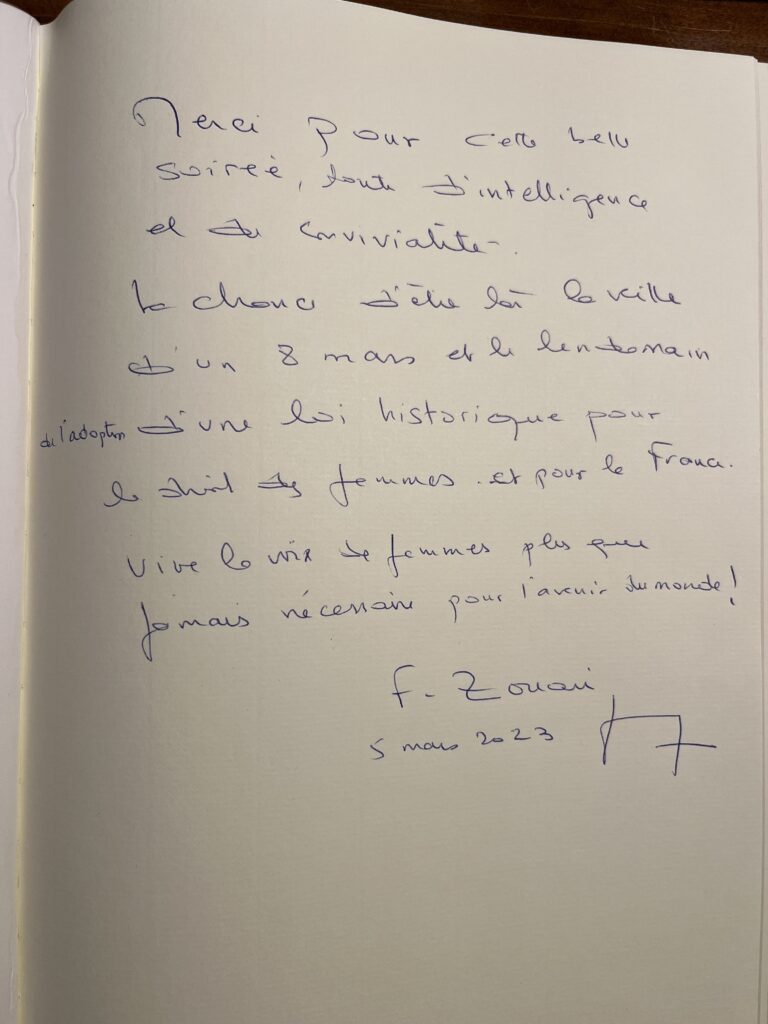 Merci pour cette belle
soirée, toute d'intelligence
et de convivialité.
La chance d'être là la veille
d'un 8 mars et le lendemain
de l'adoption d'une loi historique pour
le droit des femmes. et pour la France.
Vive la voix de femmes plus que
jamais nécessaire pour l'avenir du monde !
F. Zouari
5 mars 2023